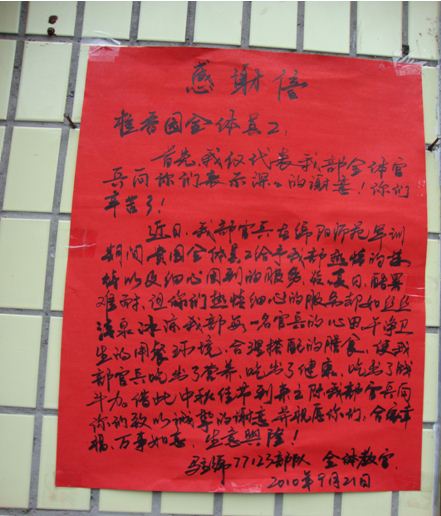 感謝信
雅香园全体员工:
首先,我仅代表我部全体官
兵向你们表示深深的谢意!你们
辛苦了!
近日,我部官兵在绵阳师范军训
期间贵园全体员工给予我部热情的接
待以及细心周到的服务,炎夏日,酷暑
难耐,但你们热情细心的服务却如丝丝
清泉冰凉我部每一名官兵的心里,干净卫
生的用餐环境,合理搭配的膳食,使我
部官兵吃出了营养,吃出了健康,吃出了战
斗力。借此中秋佳节到来之际我部官兵向
你们致以诚挚的谢意并祝愿你们,合家幸
福,万事如意,生意興隆!
马 77123部队 全体教官
2010年9月21日